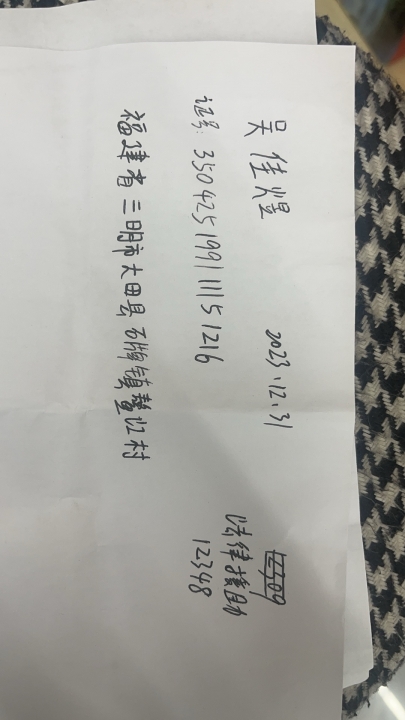 吴佳煜 2023.12.31
证号: 350425199111151216
福建省三明市大田县石牌镇鳌江村
法律援助
12348